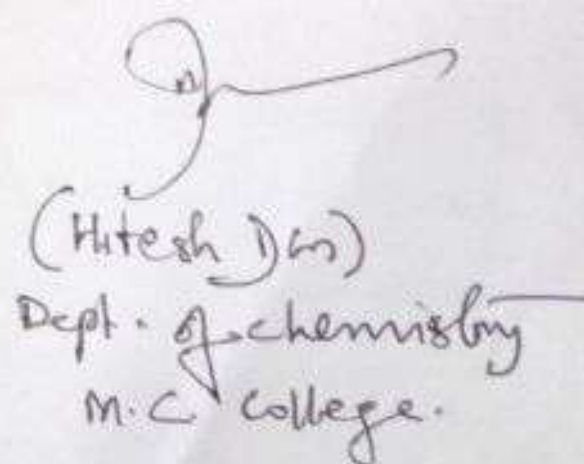 (Hitesh Das)
Dept. of chemistry
M.C College.